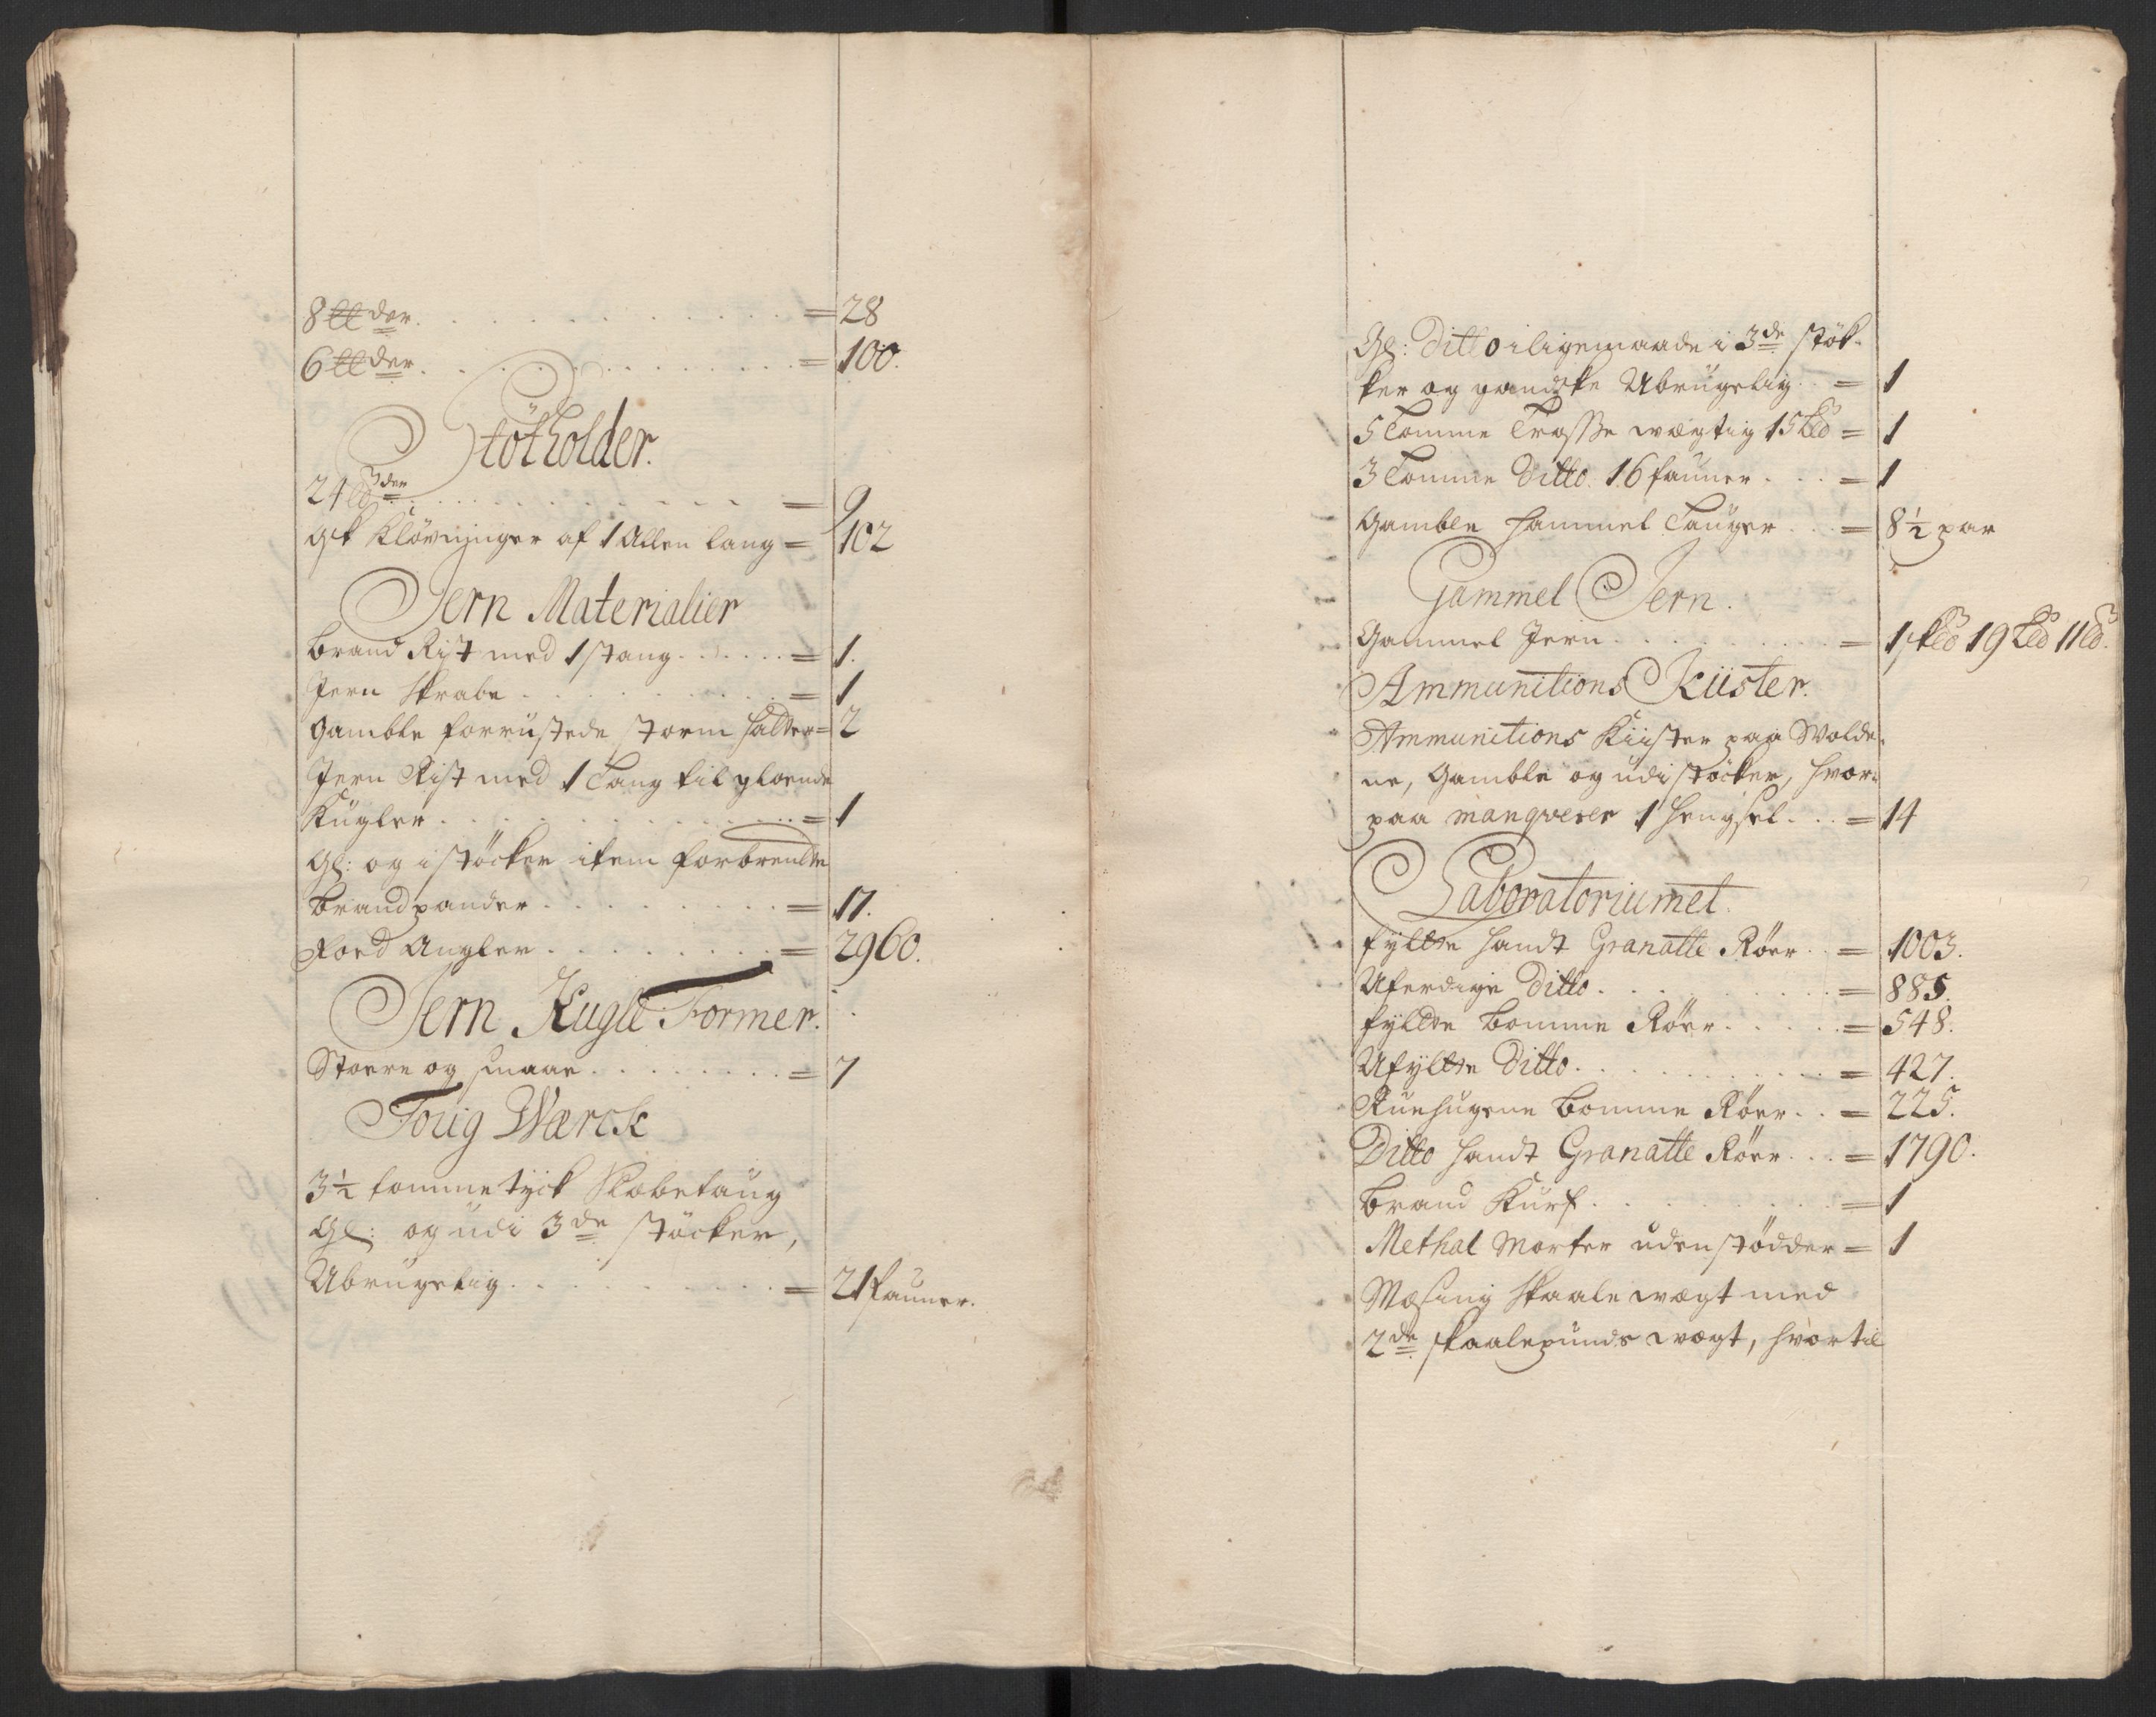 8 ℔der = 28
6 ℔der = 100.
Stötholder.
24 ℔der = 9
Klövninger af 1 Allen lang = 102
Jern Materialier
Brand Rist med 1 stang = 1.
Jern Skrabe = 1
Gamble forrüstede storm = 2
Jern Rist med 1 Tang til gloende
Kügler = 1
Gl: og i støcker item forbrendte
Brandpander = 17.
Foed Angler = 2960.
Jern Kugle Former.
Stoere og smaae = 7
Toug Wærck
3½ tomme tyck Slobetaug
Gl: og udi 3de støcker,
Ubrugelig = 21 fauner.
Gl: Ditto iligemaade i 3de støk-
ker og gandske Ubrugelig = 1
5 Tomme Trosse wægtig 15 L℔ = 1
3 Tomme Ditto 16 fauner = 1
Gamble Hammel Tauger = 8½ par
Gammel Jern.
Gammel Jern = 1 sk℔ 19 L℔ 11 ℔.
Ammunitions Kiister.
Ammunitions Kiister paa Wolde-
ne, Gamble og udi støcker, hvor-
paa manqverer 1 Hengsel = 14
Laboratoriumet.
fyldte Handt Granatte Röer = 1003.
Uferdige Ditto = 885.
fyldte Bomme Röer = 548.
Ufyldte Ditto = 427.
Ruehugene Bomme Röer = 225.
Ditto Handt Granatte Röer = 1790.
Brand Kurf = 1
Methal Morter uden stødder = 1
Mesing Skaale wægt med
2de skaalepunds wægt, hvortil